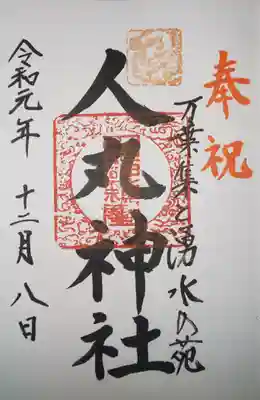 奉祝
万葉集と湧水の苑
人丸神社
令和元年 十二月 八日